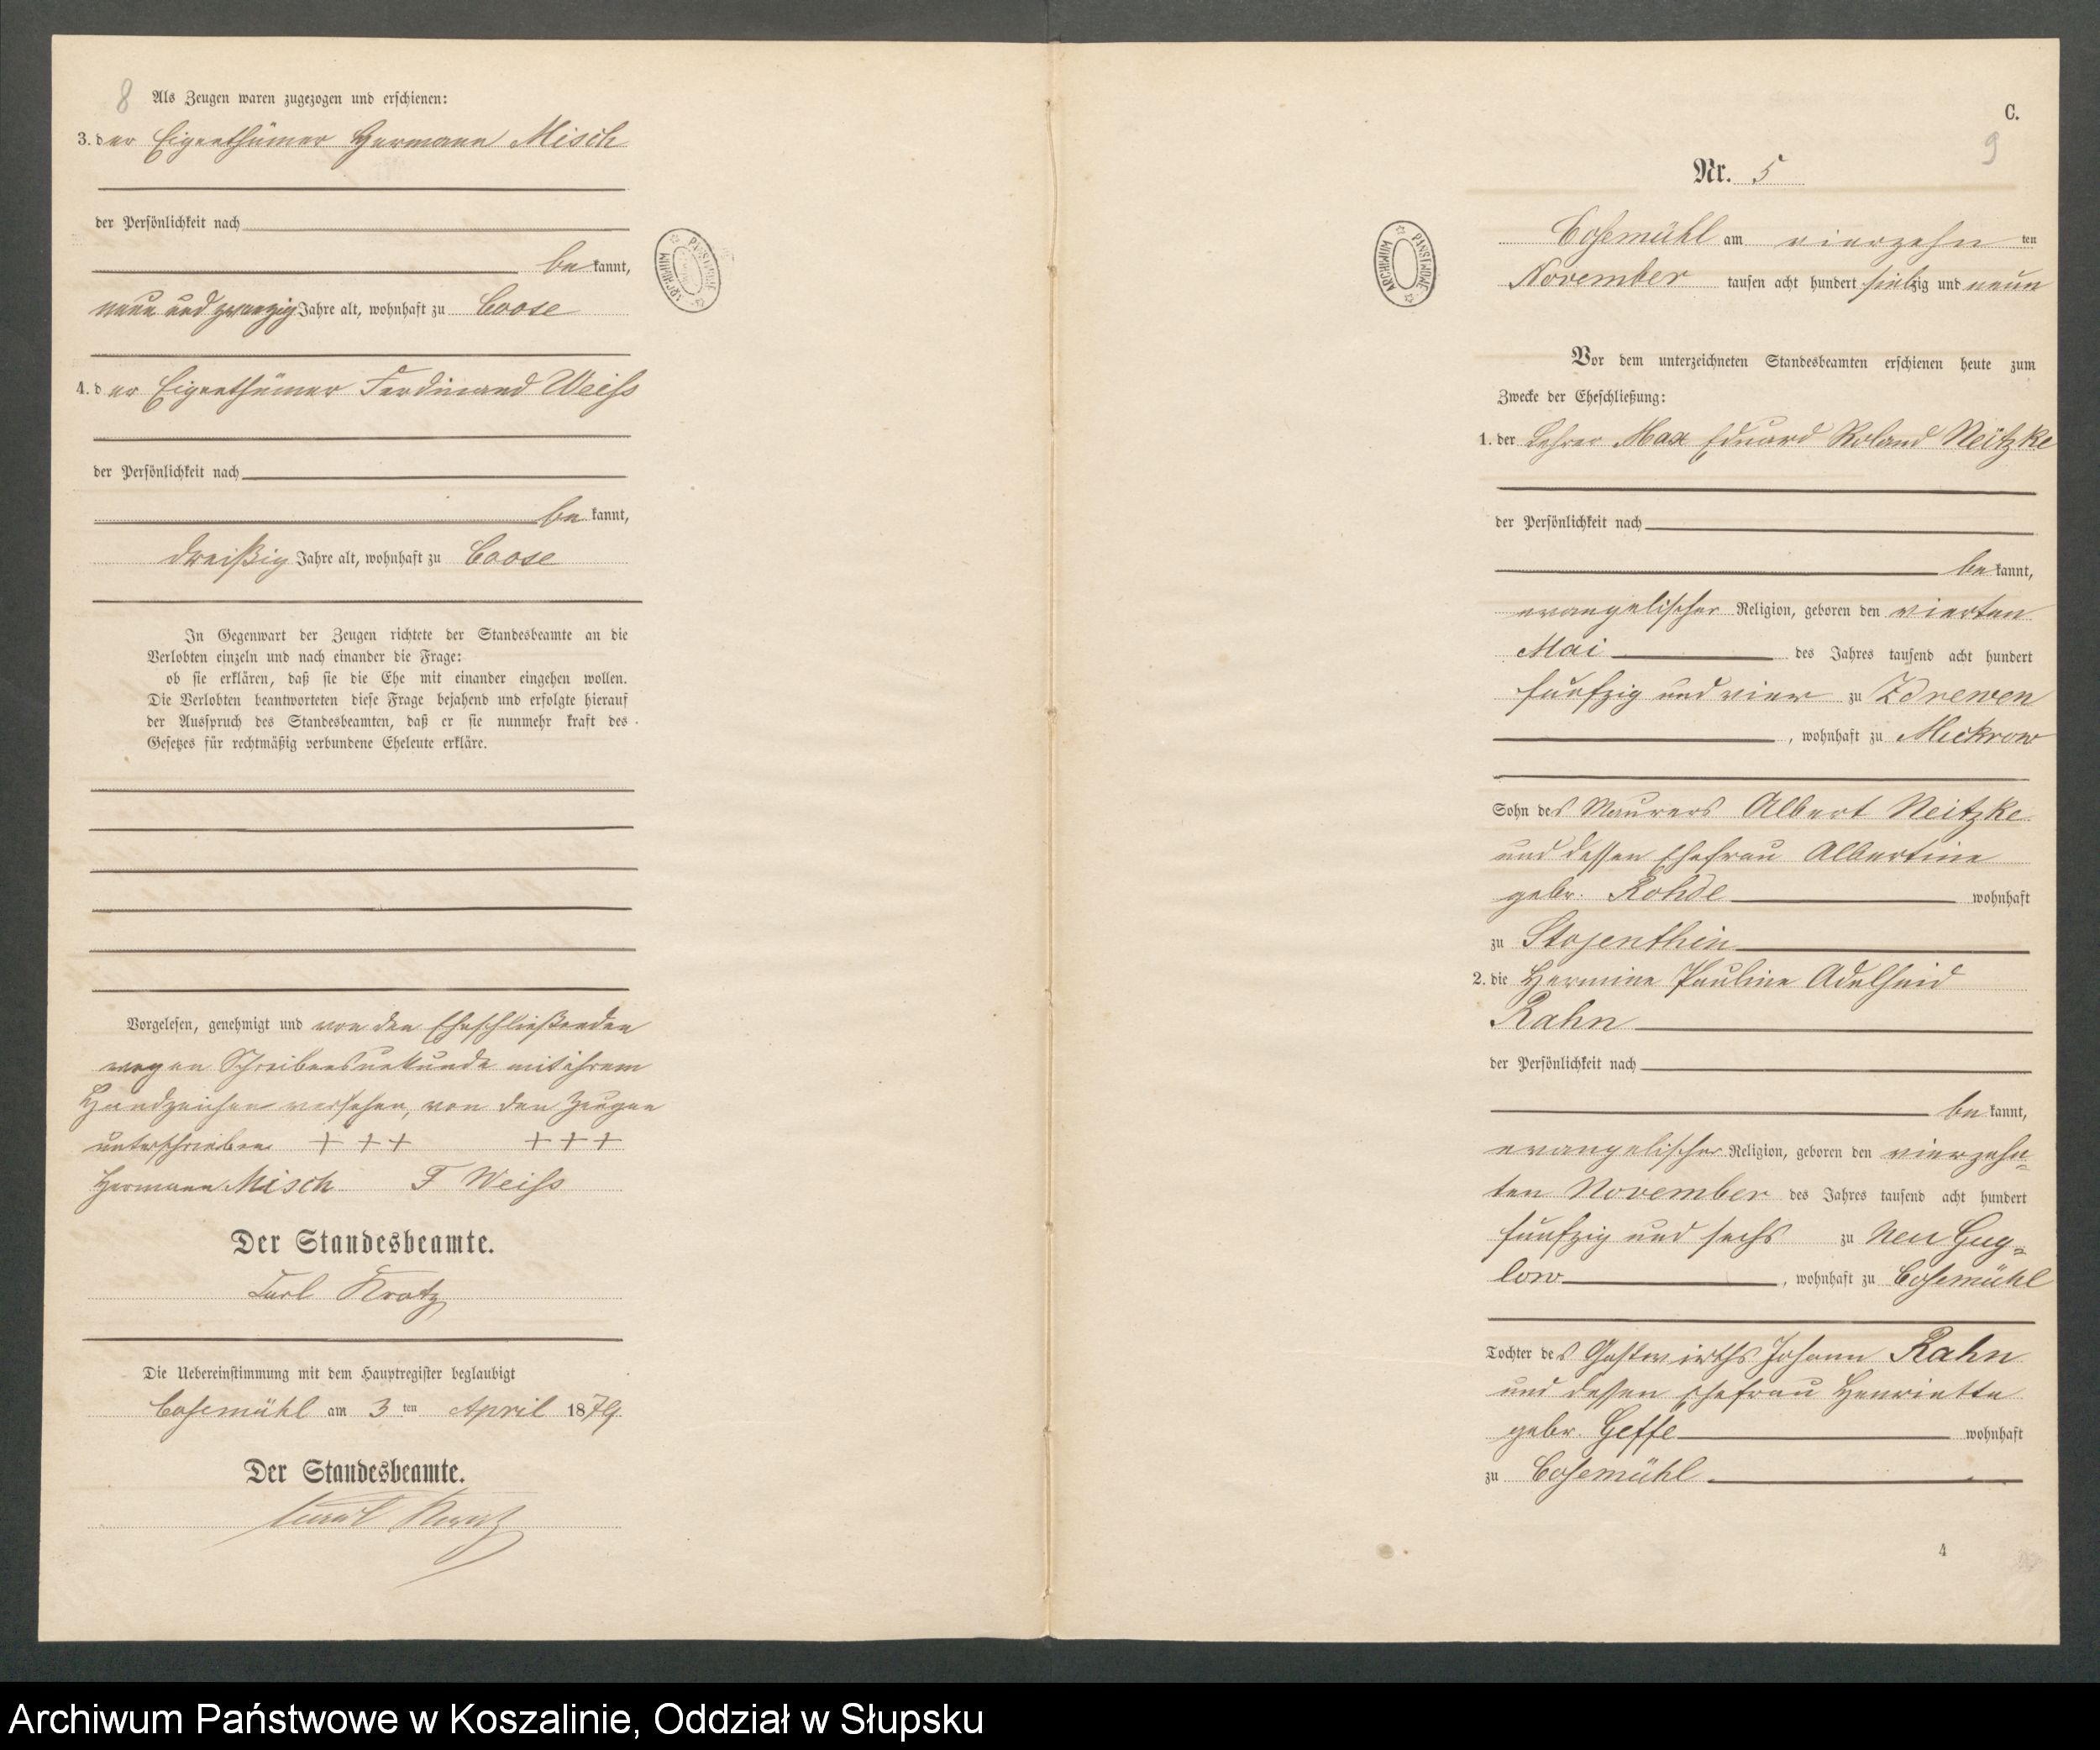 8
Als Zeugen waren zugezogen und erschienen:
3. der Eigenthümer Hermann Misch
der Persönlichkeit nach
bekannt,
neun und zwanzig Jahre alt, wohnhaft zu Coose
4. der Eigenthümer Ferdinand Weiss
der Persönlichkeit nach
bekannt,
dreißig Jahre alt, wohnhaft zu Coose
In Gegenwart der Zeugen richtete der Standesbeamte an die
Verlobten einzeln und nach einander die Frage:
ob sie erklären, daß sie die Ehe mit einander eingehen wollen.
Die Verlobten beantworteten diese Frage bejahend und erfolgte hierauf
der Ausspruch des Standesbeamten, daß er sie nunmehr kraft des
Gesetzes für rechtmäßig verbundene Eheleute erkläre.
Vorgelesen, genehmigt und von den Eheschließenden
wegen Schreibensunkunde mit ihrem
Handzeichen versehen, von den Zeugen
unterschrieben +++ +++
Hermann Misch F Weiss
Der Standesbeamte.
Carl Kratz
Die Uebereinstimmung mit dem Hauptregister beglaubigt
Cosemühl am 3ten April 1879
Der Standesbeamte.
Carl Kratz
ARCHIWUM PAŃSTWOWE
C.
9
Nr. 5
ARCHIWUM PAŃSTWOWE
Cosemühl am vierzehnten
November tausen acht hundert siebzig und neun
Vor dem unterzeichneten Standesbeamten erschienen heute zum
Zwecke der Eheschließung:
1. der Lehrer Max Eduard Roland Neitzke
der Persönlichkeit nach
bekannt,
evangelischer Religion, geboren den vierten
Mai des Jahres tausend acht hundert
fünfzig und vier zu Zdrewen
, wohnhaft zu Mickrow
Sohn des Maurers Albert Neitzke
und dessen Ehefrau Albertine
gebr. Rohde wohnhaft
zu Stojenthin
2. die Hermine Pauline Adelheid
Rahn
der Persönlichkeit nach
bekannt,
evangelischer Religion, geboren den vierzehn-
ten November des Jahres tausend acht hundert
fünfzig und sechs zu Neu Gug-
low, wohnhaft zu Cosemühl
Tochter des Gastwirths Johann Rahn
und dessen Ehefrau Henriette
gebr. Geffe wohnhaft
zu Cosemühl
4
Archiwum Państwowe w Koszalinie, Oddział w Słupsku